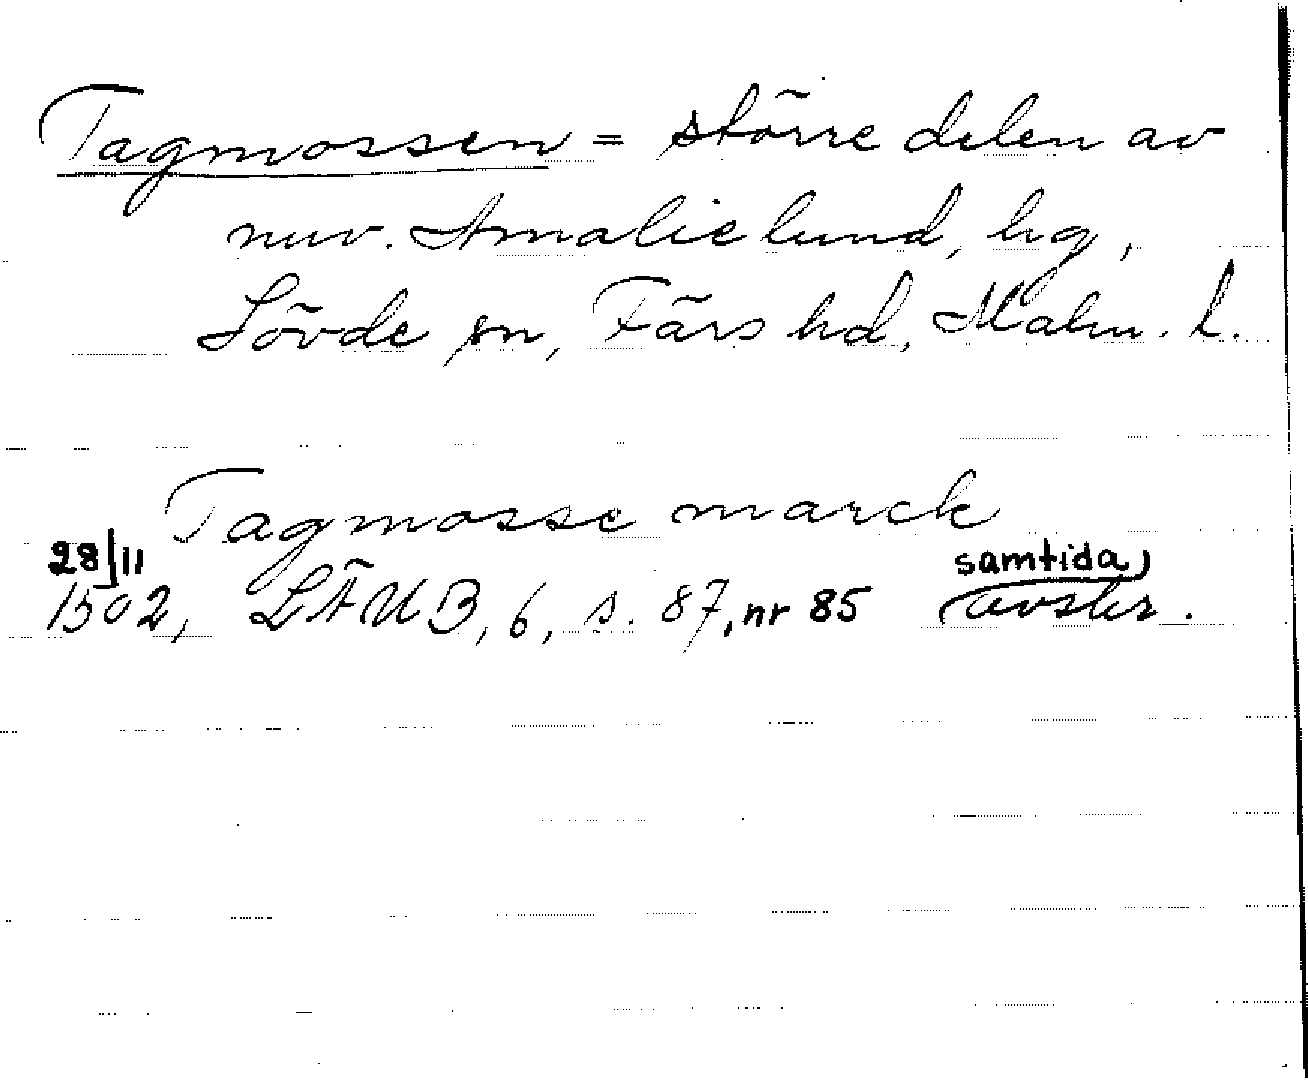 Tagmossen = större delen av
nuv. Amalielund, hg,
Lövde sn, Färs hd, Malm. l.
Tagmosse marck
28/11 samtida
1502, LÄUB, 6, s. 87, nr 85 avskr.